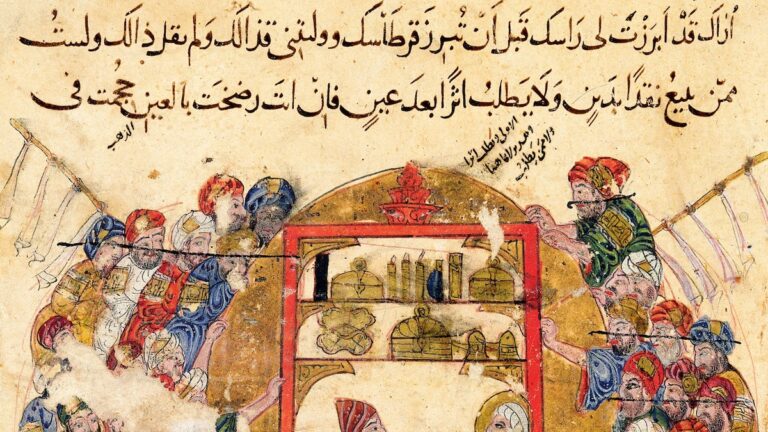 أراك قد أبرزت لى راسك قبل أن تبرز قرطاسك وولیتنى قذالك ولم تقل ذا لك ولستُ
ممن يبيعُ نقدًا بدَينٍ وَلا يَطلبُ اثرًا بعدَ عينٍ فانْ انتَ رضختَ بالعينِ حجمت فى
الذهب